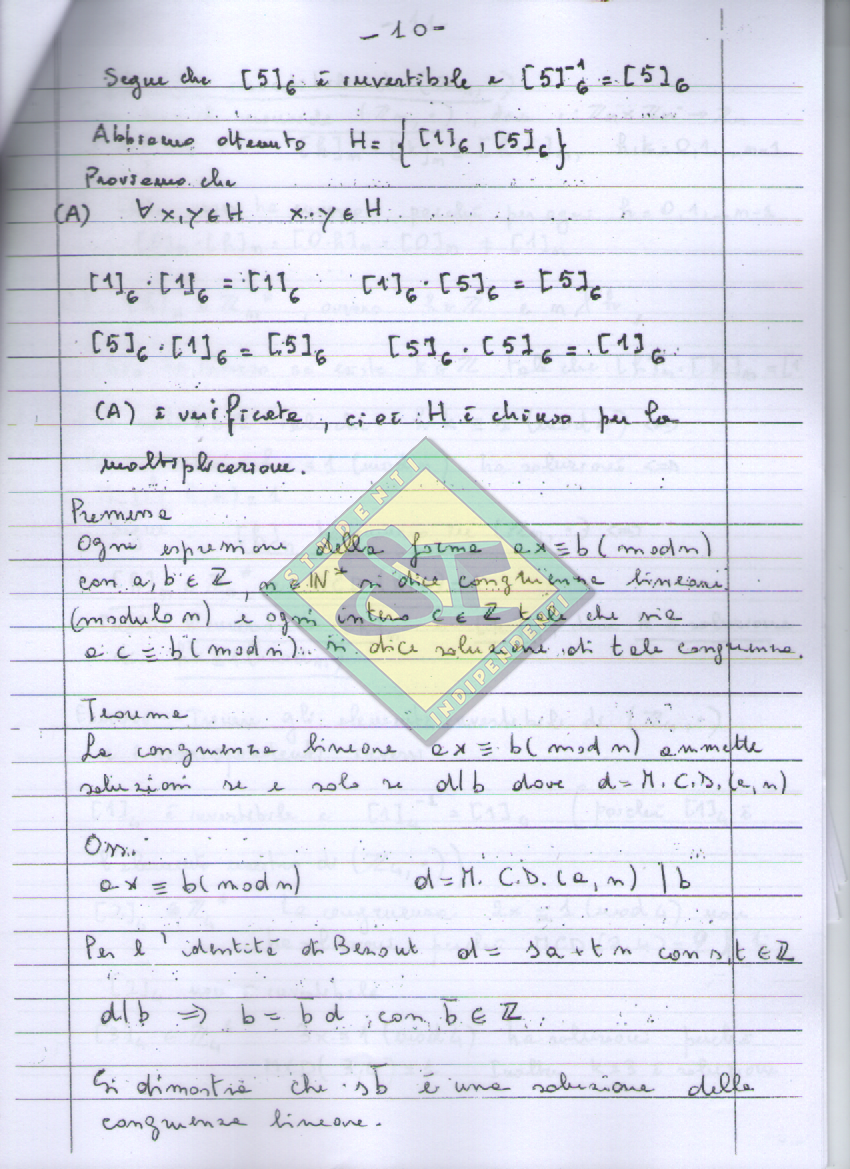 - 10 -
Segue che [5]₆ è invertibile e [5]₆⁻¹ = [5]₆
Abbiamo ottenuto H = { [1]₆ , [5]₆ }
Proviamo che
(A) ∀ x, y ∈ H x · y ∈ H
[1]₆ · [1]₆ = [1]₆ [1]₆ · [5]₆ = [5]₆
[5]₆ · [1]₆ = [5]₆ [5]₆ · [5]₆ = [1]₆
(A) è verificata, cioè H è chiuso per la
moltiplicazione.
Premessa
Ogni espressione della forma ax ≡ b (mod n)
con a, b ∈ ℤ, n ∈ ℕ* si dice congruenza lineare
(modulo n) e ogni intero c ∈ ℤ tale che sia
a c ≡ b (mod n) si dice soluzione di tale congruenza.
Teorema
La congruenza lineare ax ≡ b (mod n) ammette
soluzioni se e solo se d|b dove d = M.C.D.(a, n)
Oss.
ax ≡ b (mod n) d = M.C.D.(a, n) | b
Per l'identità di Bezout d = sa + tn con s, t ∈ ℤ
d|b ⇒ b = b̄ d, con b̄ ∈ ℤ
Si dimostra che s b̄ è una soluzione della
congruenza lineare.
STUDENTI
SI
INDIPENDENTI